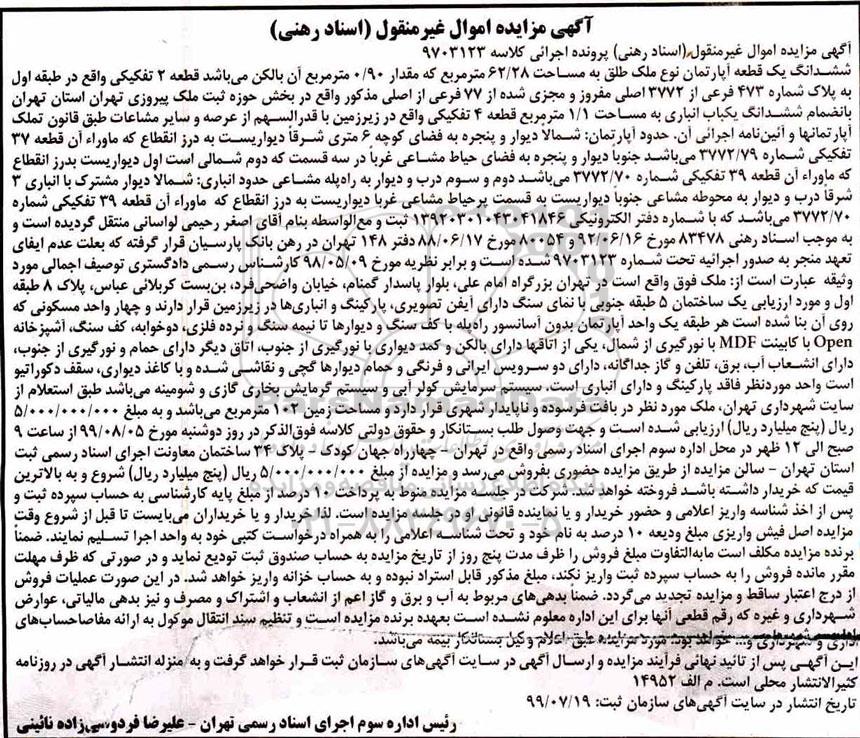 آگهی مزایده اموال غیرمنقول (اسناد رهنی)
آگهی مزایده اموال غیرمنقول (اسناد رهنی) پرونده اجرائی کلاسه ۹۷۰۳۱۲۳
ششدانگ یک قطعه آپارتمان نوع ملک طلق به مساحت ۶۲/۲۸ مترمربع که مقدار ۰/۹۰ مترمربع آن بالکن می‌باشد قطعه ۲ تفکیکی واقع در طبقه اول
به پلاک شماره ۴۷۳ فرعی از ۳۷۷۲ اصلی مفروز و مجزی شده از ۷۷ فرعی از اصلی مذکور واقع در بخش حوزه ثبت ملک پیروزی تهران استان تهران
بانضمام ششدانگ یکباب انباری به مساحت ۱/۱ مترمربع قطعه ۴ تفکیکی واقع در زیرزمین با قدرالسهم از عرصه و سایر مشاعات طبق قانون تملک
آپارتمانها و آئین‌نامه اجرائی آن. حدود آپارتمان: شمالا دیوار و پنجره به فضای کوچه ۶ متری شرقاً دیواریست به درز انقطاع که ماوراء آن قطعه ۳۷
تفکیکی شماره ۳۷۷۲/۷۹ می‌باشد جنوباً دیوار و پنجره به فضای حیاط مشاعی غرباً در سه قسمت که دوم شمالی است اول دیواریست بدرز انقطاع
که ماوراء آن قطعه ۳۹ تفکیکی شماره ۳۷۷۲/۷۰ می‌باشد دوم و سوم درب و دیوار به راه‌پله مشاعی حدود انباری: شمالا دیوار مشترک با انباری ۳
شرقاً درب و دیوار به محوطه مشاعی جنوباً دیواریست به قسمت پرحیاط مشاعی غرباً دیواریست به درز انقطاع که ماوراء آن قطعه ۳۹ تفکیکی شماره
۳۷۷۲/۷۰ می‌باشد که با شماره دفتر الکترونیکی ۱۳۹۲۰۳۰۱۰۴۳۰۴۱۸۴۶ ثبت و مع‌الواسطه بنام آقای اصغر رحیمی لواسانی منتقل گردیده است و
به موجب اسناد رهنی ۸۳۴۷۸ مورخ ۹۲/۰۶/۱۶ و ۸۰۰۵۴ مورخ ۸۸/۰۶/۱۷ دفتر ۱۴۸ تهران در رهن بانک پارسیان قرار گرفته که بعلت عدم ایفای
تعهد منجر به صدور اجرائیه تحت شماره ۹۷۰۳۱۲۳ شده است و برابر نظریه مورخ ۹۸/۰۵/۰۹ کارشناس رسمی دادگستری توصیف اجمالی مورد
وثیقه عبارت است از: ملک فوق واقع است در تهران بزرگراه امام علی، بلوار پاسدار گمنام، خیابان واضحی‌فرد، بن‌بست کربلائی عباس، پلاک ۸ طبقه
اول و مورد ارزیابی یک ساختمان ۵ طبقه جنوبی با نمای سنگ دارای آیفن تصویری، پارکینگ و انباری‌ها در زیرزمین قرار دارند و چهار واحد مسکونی که
روی آن بنا شده است هر طبقه یک واحد آپارتمان بدون آسانسور راه‌پله با کف سنگ و دیوارها تا نیمه سنگ و نرده فلزی، دوخوابه، کف سنگ، آشپزخانه
Open با کابینت MDF با نورگیری از شمال، یکی از اتاقها دارای بالکن و کمد دیواری با نورگیری از جنوب، اتاق دیگر دارای حمام و نورگیری از جنوب،
دارای انشعاب آب، برق، تلفن و گاز جداگانه، دارای دو سرویس ایرانی و فرنگی و حمام دیوارها گچی و نقاشی شده و با کاغذ دیواری، سقف دکوراتیو
است واحد موردنظر فاقد پارکینگ و دارای انباری است. سیستم سرمایش کولر آبی و سیستم گرمایش بخاری گازی و شومینه می‌باشد طبق استعلام از
سایت شهرداری تهران، ملک مورد نظر در بافت فرسوده و ناپایدار شهری قرار دارد و مساحت زمین ۱۰۲ مترمربع می‌باشد و به مبلغ ۵/۰۰۰/۰۰۰/۰۰۰
ریال (پنج میلیارد ریال) ارزیابی شده است و جهت وصول طلب بستانکار و حقوق دولتی کلاسه فوق‌الذکر در روز دوشنبه مورخ ۹۹/۰۸/۰۵ از ساعت ۹
صبح الی ۱۲ ظهر در محل اداره سوم اجرای اسناد رسمی واقع در تهران - چهارراه جهان کودک - پلاک ۳۴ ساختمان معاونت اجرای اسناد رسمی ثبت
استان تهران - سالن مزایده از طریق مزایده حضوری بفروش می‌رسد و مزایده از مبلغ ۵/۰۰۰/۰۰۰/۰۰۰ ریال (پنج میلیارد ریال) شروع و به بالاترین
قیمت که خریدار داشته باشد فروخته خواهد شد. شرکت در جلسه مزایده منوط به پرداخت ۱۰ درصد از مبلغ پایه کارشناسی به حساب سپرده ثبت و
پس از اخذ شناسه واریز اعلامی و حضور خریدار و یا نماینده قانونی او در جلسه مزایده است. لذا خریدار و یا خریداران می‌بایست تا قبل از شروع وقت
مزایده اصل فیش واریزی مبلغ ودیعه ۱۰ درصد به نام خود و تحت شناسه اعلامی را به همراه درخواست کتبی خود به واحد اجرا تسلیم نمایند. ضمناً
برنده مزایده مکلف است مابه‌التفاوت مبلغ فروش را ظرف مدت پنج روز از تاریخ مزایده به حساب صندوق ثبت تودیع نماید و در صورتی که ظرف مهلت
مقرر مانده فروش را به حساب سپرده ثبت واریز نکند، مبلغ مذکور قابل استراد نبوده و به حساب خزانه واریز خواهد شد. در این صورت عملیات فروش
از درج اعتبار ساقط و مزایده تجدید می‌گردد. ضمناً بدهی‌های مربوط به آب و برق و گاز اعم از انشعاب و اشتراک و مصرف و نیز بدهی مالیاتی، عوارض
شهرداری و غیره که رقم قطعی آنها برای این اداره معلوم نشده است بعهده برنده مزایده است و تنظیم سند انتقال موکول به ارائه مفاصاحساب‌های
اداری و شهرداری و... خواهد بود. مورد مزایده طبق اعلام وکیل بستانکار بیمه می‌باشد.
این آگهی پس از تائید نهائی فرآیند مزایده و ارسال آگهی در سایت آگهی‌های سازمان ثبت قرار خواهد گرفت و به منزله انتشار آگهی در روزنامه
کثیرالانتشار محلی است. م الف ۱۴۹۵۲
تاریخ انتشار در سایت آگهی‌های سازمان ثبت: ۹۹/۰۷/۱۹
رئیس اداره سوم اجرای اسناد رسمی تهران - علیرضا فردوسی‌زاده نائینی